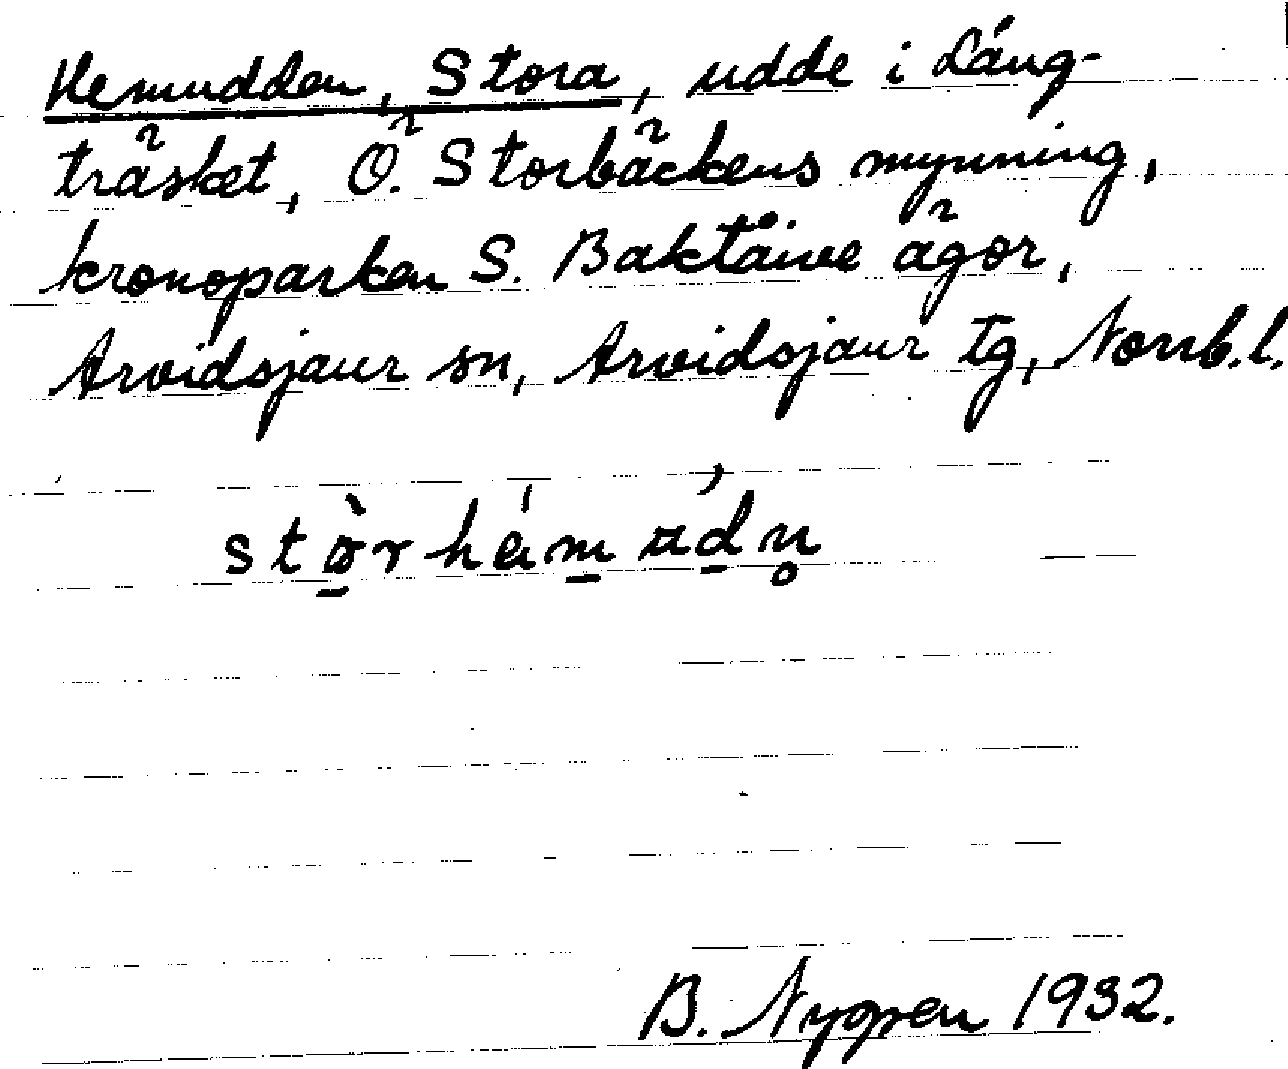 Hemudden, Stora, udde i Lång-
träsket, Ö. Storbäckens mynning,
kronoparken S. Baktåive ägor,
Arvidsjaur sn, Arvidsjaur tg, Norrb.l.
B. Nygren 1932.